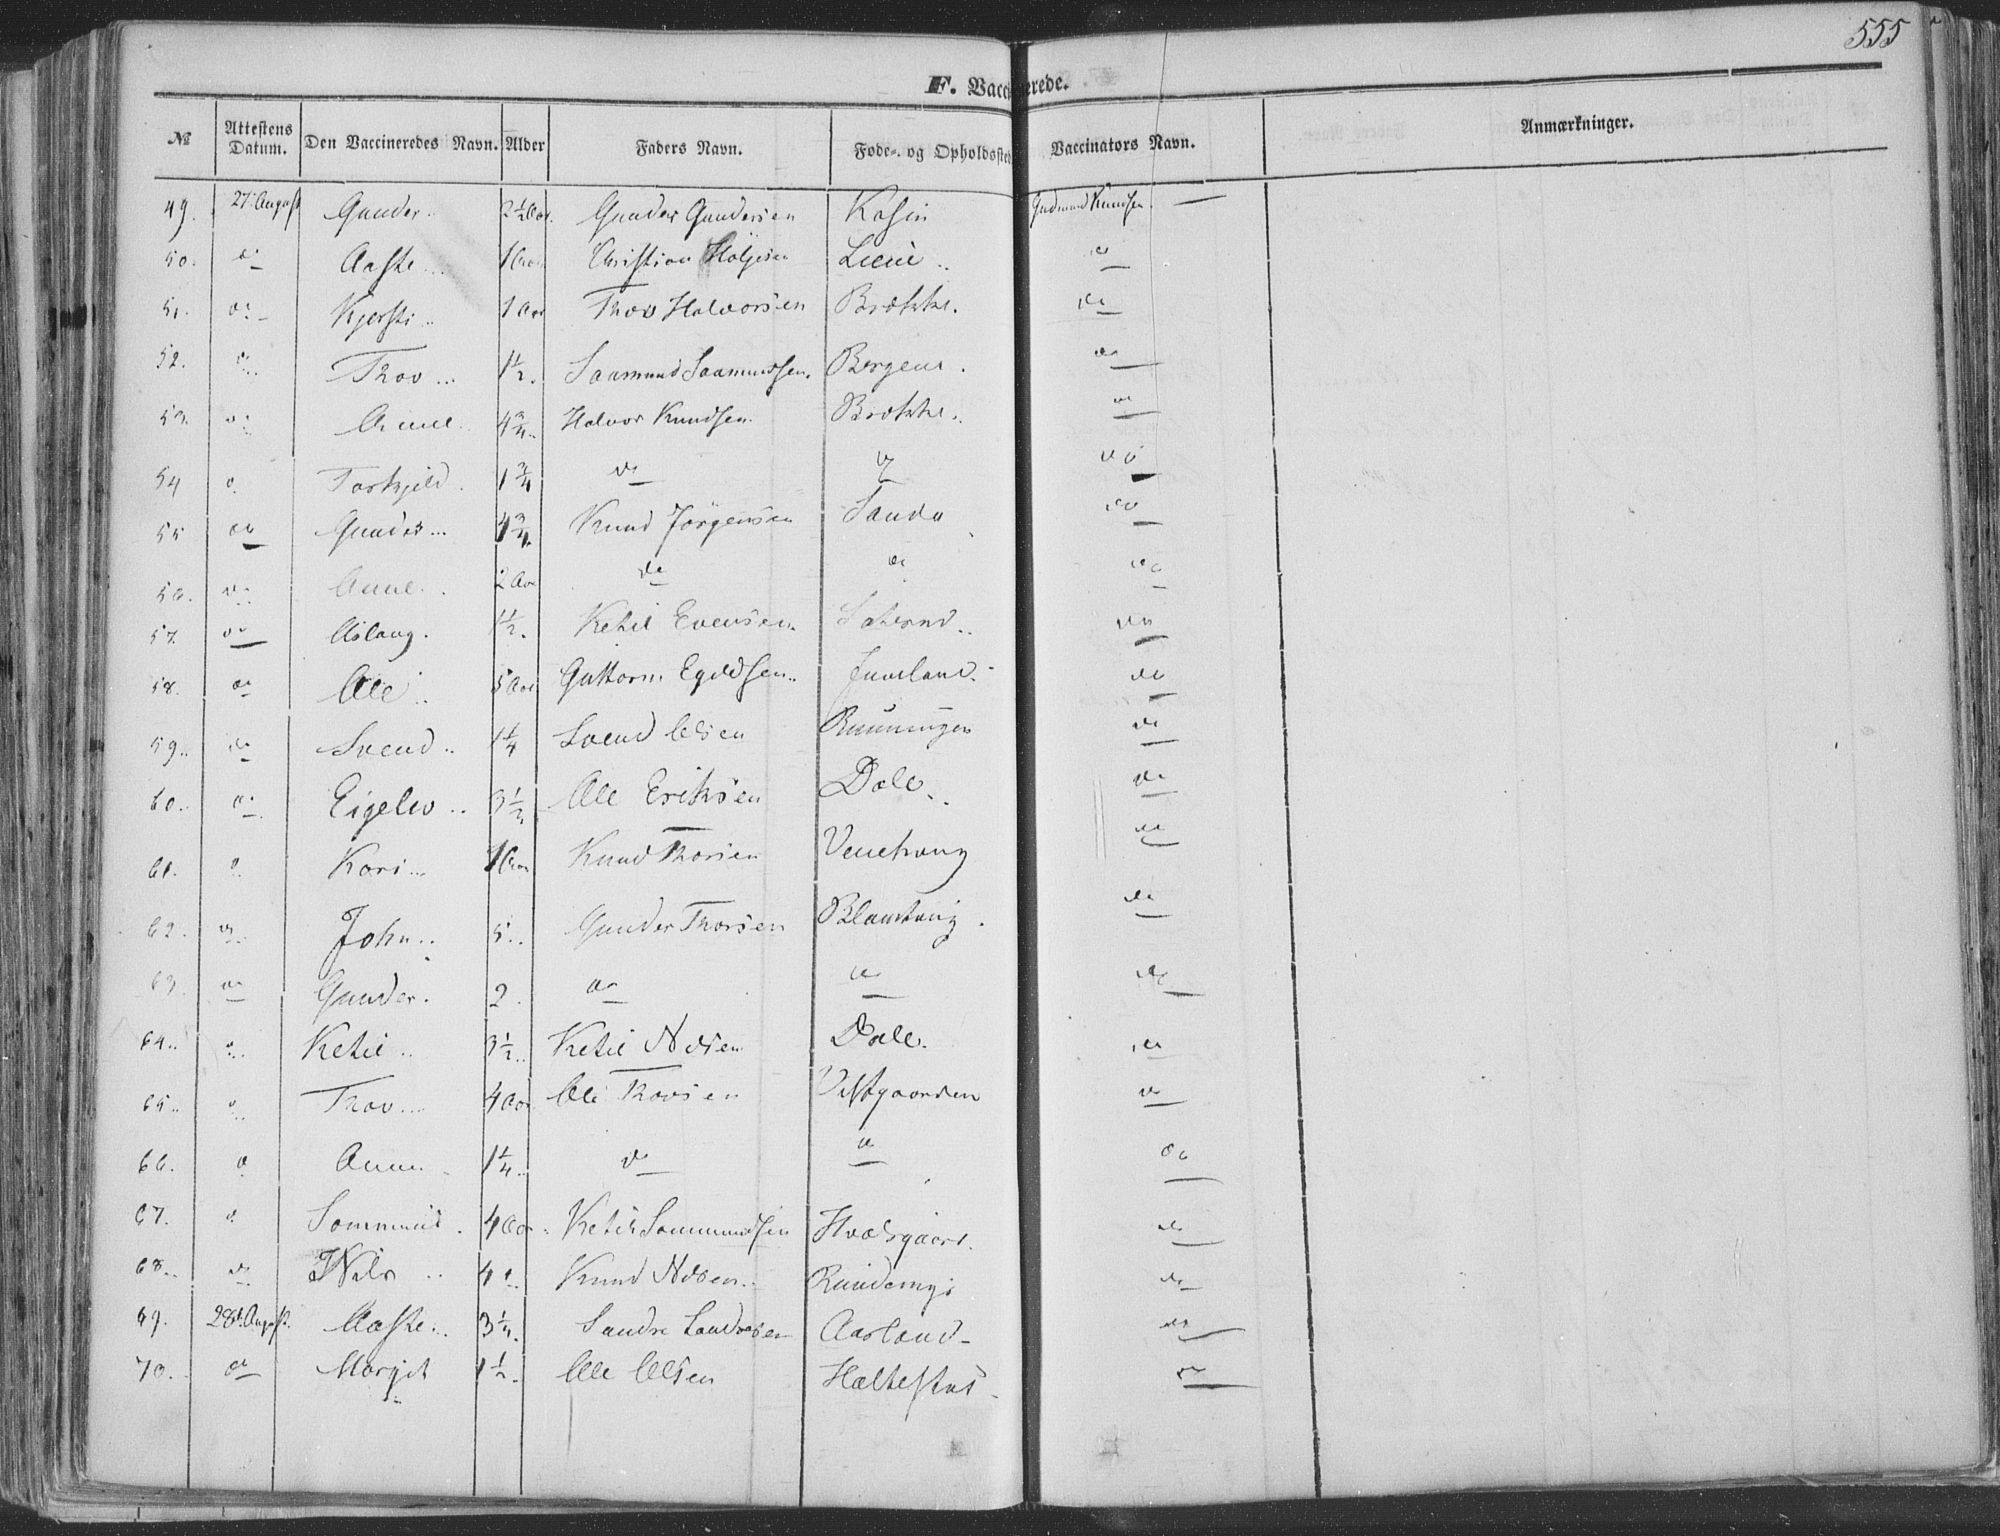 555
F. Vaccinerede.
№ Attestens Datum. Den Vaccineredes Navn. Alder Faders Navn. Føde- og Opholdssted Vaccinators Navn. Anmærkninger.
49. 27 August Gunder.. 2 1/2 Aar. Gunder Gundersen Kosin Gudmund Knudsen. —
50. do Aaste... 1 Aar Christian Holjesen do
51. do Kjersti.. 1 Aar Thov Halvorsen Brokke. do
52. do Thov... 1 1/2. Saamund Saamundsen. Bergene. do
53. do Anne.. 4 3/4.. Halvor Knudsen. Brokke. do
54 do Torkjeld. 1 3/4 do do do
55 do Gunder... 4 3/4. Knud Jörgensen Sanda do
56. do Anne.. 2 Aar do do do
57. do Aslaug. 1 1/2. Ketil Evensen. do
58. do Ole.. 5 Aar Guttorm Egeldsen.. Juveland. do
59.. do Svend.. 1 1/4 Svend Olsen do
60. do Eigelev.. 3 1/2 Ole Eriksen Dale.. do
61. do Kari... 1 Aar Knud Thorsen do
62. do John.. 5.. Gunder Thorsen do
63. do Gunder. 2. do do do
64.. do Ketil.. 3 1/2.. Ketil Nelsen Dale. do
65.. do Thov... 4 Aar. Ole Thovsen Vestgaarden do
66. do Anne. 1 1/4.. do do do
67. do 4 Aar. Ketil do
68.. do Nils.. 4.. Knud Nelsen.. do
69. 28de August. Aaste.. 3 1/4. Sandre Sandresen Aasland do
70.. do Margit 1 1/2. Ole Olsen do